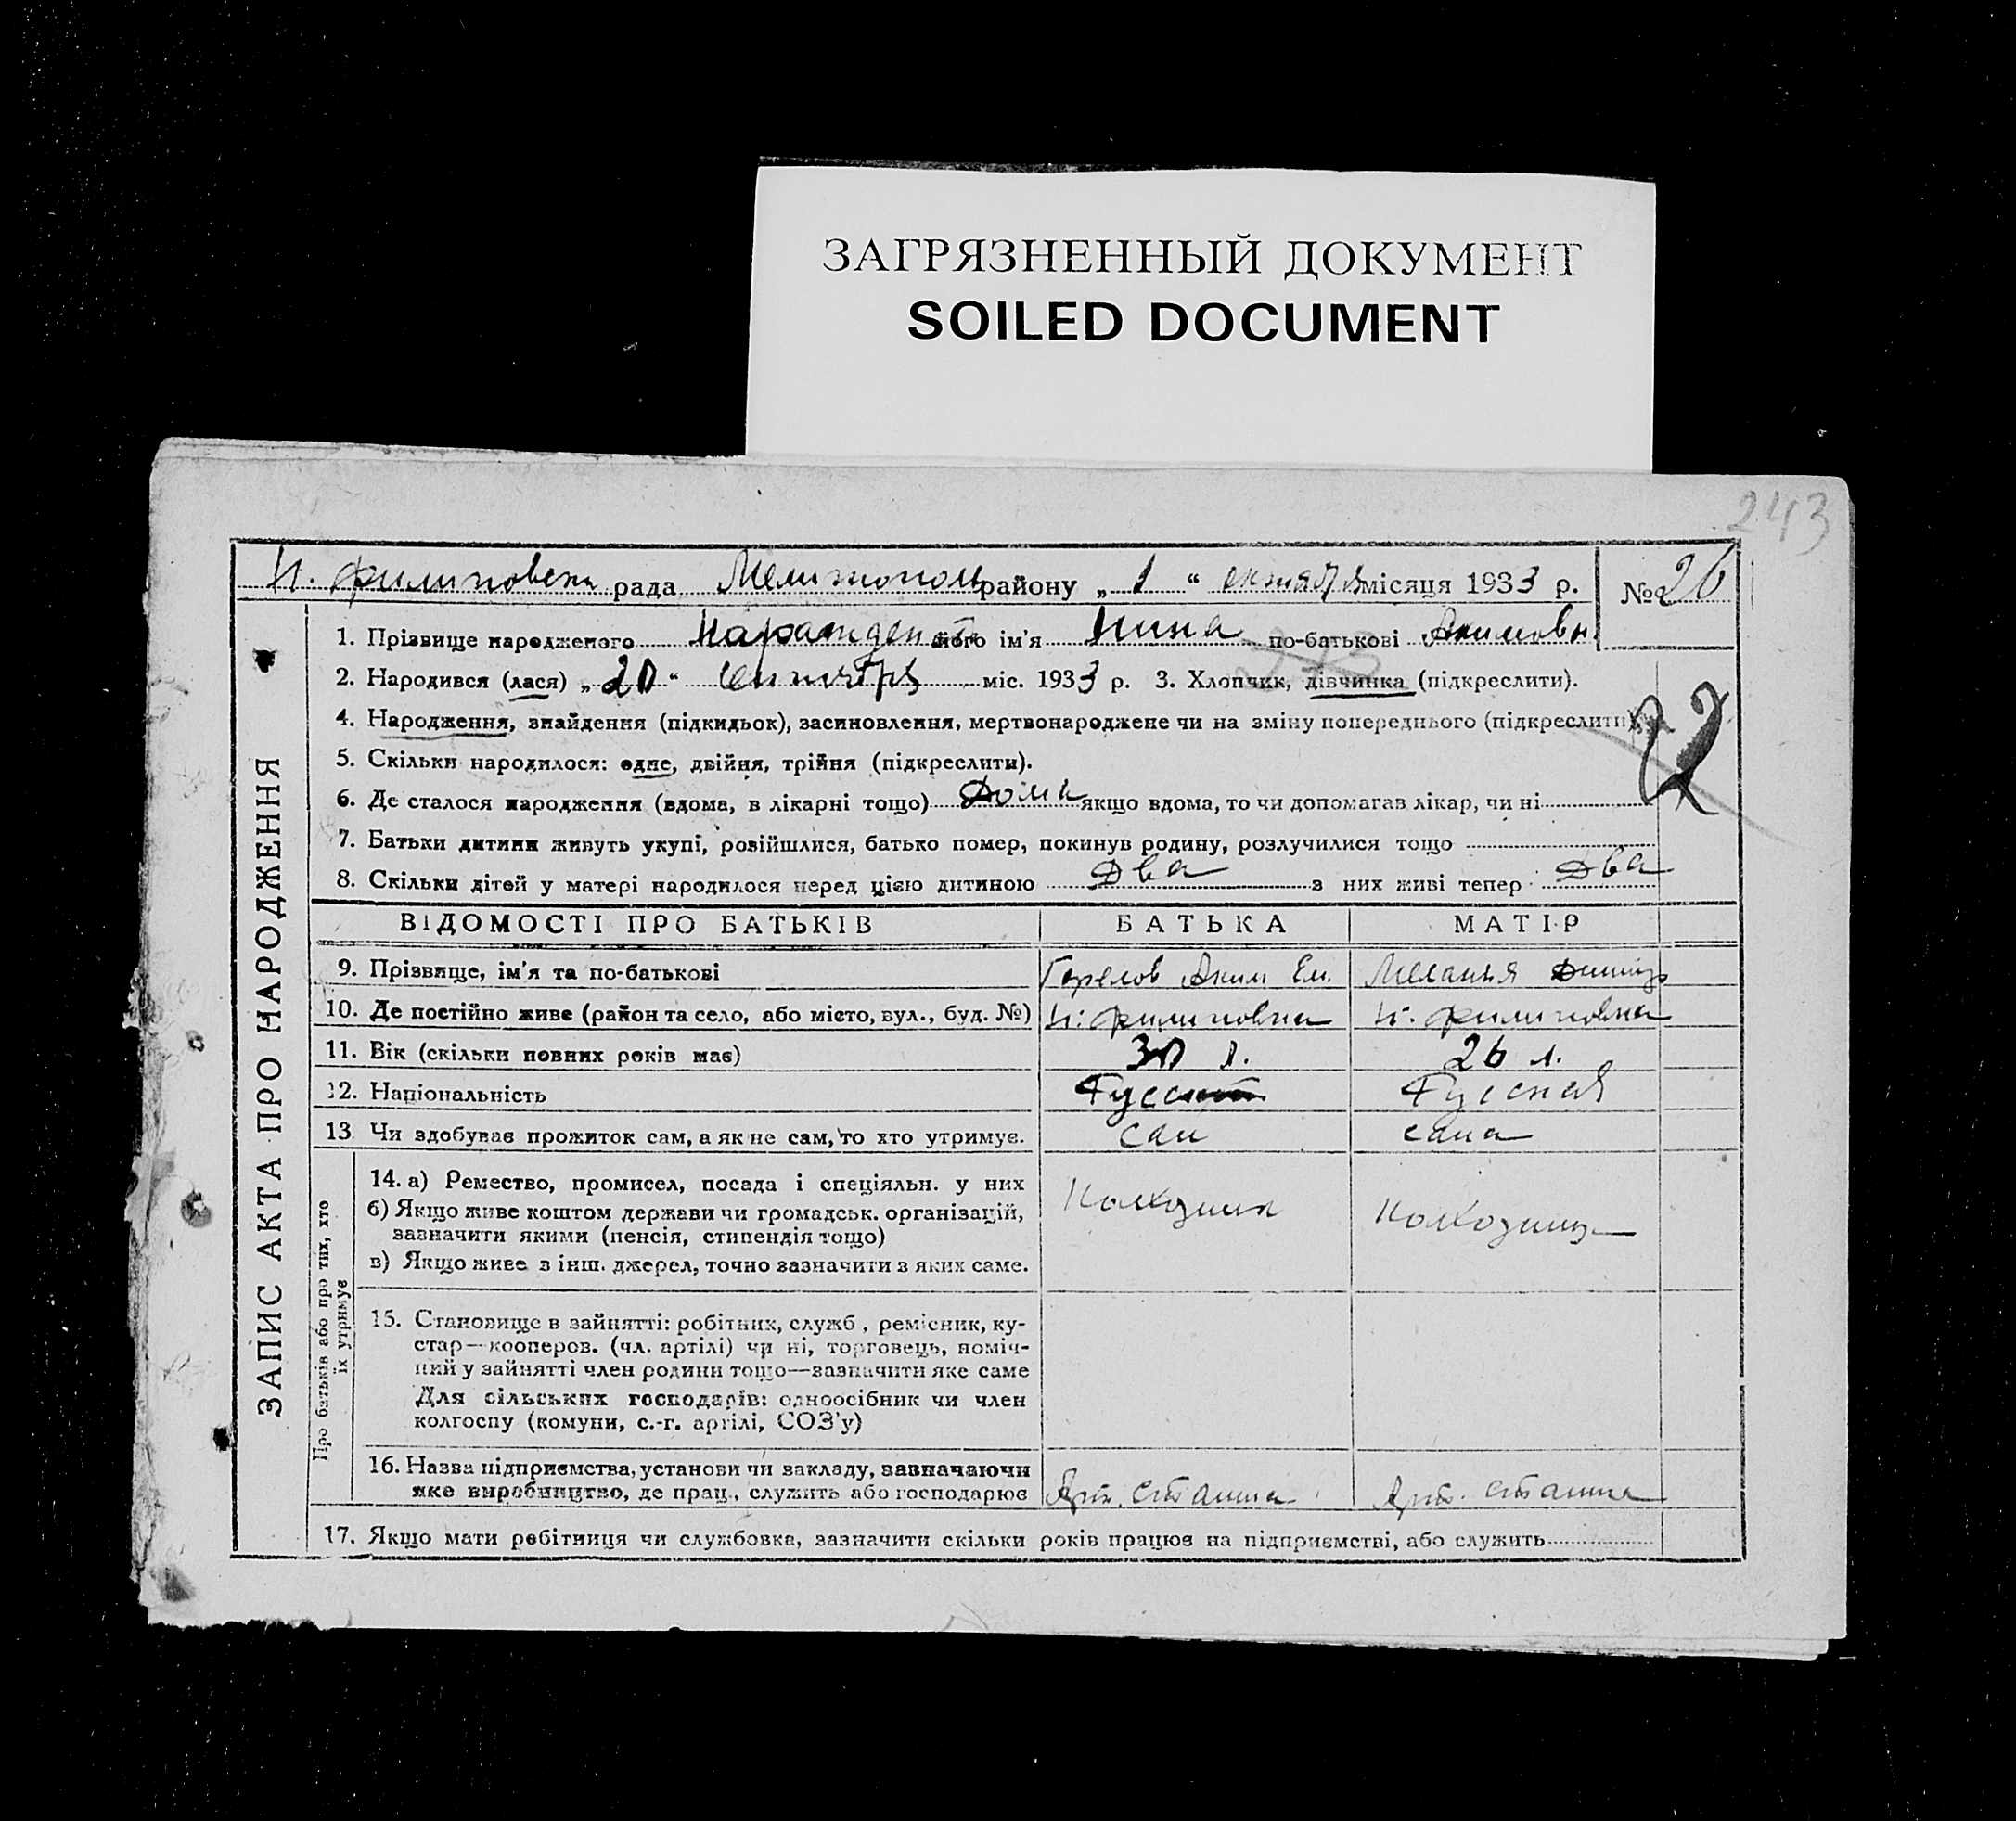 ЗАГРЯЗНЕННЫЙ ДОКУМЕНТ
SOILED DOCUMENT
243
рада Мелитополь району „ 1 “ октября місяця 1933 р. № 26
ЗАПИС АКТА ПРО НАРОДЖЕННЯ
1. Прізвище народженого його ім'я Нина по-батькові Акимовн
2. Народився (лася) „ 20 “ сентября міс. 1933 р. 3. Хлопчик, дівчинка (підкреслити).
4. Народження, знайдення (підкидьок), засиновлення, мертвонароджене чи на зміну попереднього (підкреслити).
5. Скільки народилося: одне, двійня, трійня (підкреслити).
6. Де сталося народження (вдома, в лікарні тощо) Дома якщо вдома, то чи допомагав лікар, чи ні
7. Батьки дитини живуть укупі, розійшлися, батько помер, покинув родину, розлучилися тощо
8. Скільки дітей у матері народилося перед цією дитиною Два з них живі тепер Два
ВІДОМОСТІ ПРО БАТЬКІВ БАТЬКА МАТІР
9. Прізвище, ім'я та по-батькові Горелов Аким Ем. Меланья
10. Де постійно живе (район та село, або місто, вул., буд. №) Н. Филиповка Н. Филиповка
11. Вік (скільки повних років має) 30 л. 26 л.
12. Національність Русский Русская
13. Чи здобуває прожиток сам, а як не сам, то хто утримує. сам сама
Про батьків або про тих, хто
їх утримує
14. а) Ремество, промисел, посада і спеціяльн. у них Колхозник Колхозница
б) Якщо живе коштом держави чи громадськ. організацій,
зазначити якими (пенсія, стипендія тощо)
в) Якщо живе з інш. джерел, точно зазначити з яких саме.
15. Становище в зайнятті: робітник, служб., ремісник, ку-
стар—кооперов. (чл. артілі) чи ні, торговець, поміч-
ний у зайнятті член родини тощо—зазначити яке саме
Для сільських господарів: одноосібник чи член
колгоспу (комуни, с.-г. артілі, СОЗ'у)
16. Назва підприємства, установи чи закладу, зазначаючи
яке виробництво, де прац., служить або господарює Арт. Сталина Арт. Сталина
17. Якщо мати робітниця чи службовка, зазначити скільки років працює на підприємстві, або служить